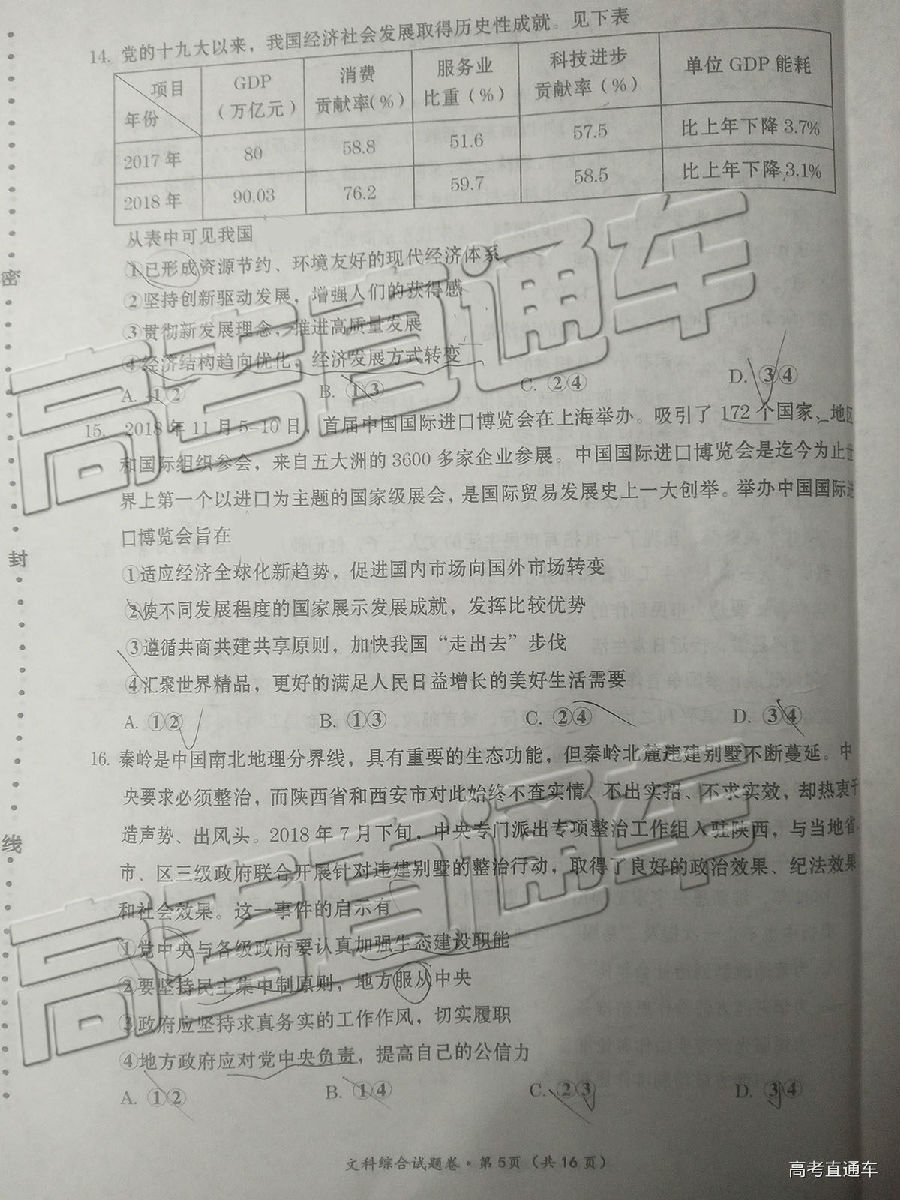 14. 党的十九大以来，我国经济社会发展取得历史性成就。见下表
项目 年份 GDP（万亿元） 消费贡献率(%) 服务业比重（%） 科技进步贡献率（%） 单位 GDP 能耗
2017 年 80 58.8 51.6 57.5 比上年下降 3.7%
2018 年 90.03 76.2 59.7 58.5 比上年下降 3.1%
从表中可见我国
①已形成资源节约、环境友好的现代经济体系
②坚持创新驱动发展，增强人们的获得感
③贯彻新发展理念，推进高质量发展
④经济结构趋向优化，经济发展方式转变
A. ①② B. ①③ C. ②④ D. ③④
15. 2018 年 11 月 5-10 日，首届中国国际进口博览会在上海举办。吸引了 172 个国家、地区
和国际组织参会，来自五大洲的 3600 多家企业参展。中国国际进口博览会是迄今为止世
界上第一个以进口为主题的国家级展会，是国际贸易发展史上一大创举。举办中国国际进
口博览会旨在
①适应经济全球化新趋势，促进国内市场向国外市场转变
②使不同发展程度的国家展示发展成就，发挥比较优势
③遵循共商共建共享原则，加快我国“走出去”步伐
④汇聚世界精品，更好的满足人民日益增长的美好生活需要
A. ①② B. ①③ C. ②④ D. ③④
16. 秦岭是中国南北地理分界线，具有重要的生态功能，但秦岭北麓违建别墅不断蔓延。中
央要求必须整治，而陕西省和西安市对此始终不查实情、不出实招、不求实效，却热衷于
造声势、出风头。2018 年 7 月下旬，中央专门派出专项整治工作组入驻陕西，与当地省、
市、区三级政府联合开展针对违建别墅的整治行动，取得了良好的政治效果、纪法效果
和社会效果。这一事件的启示有
①党中央与各级政府要认真加强生态建设职能
②要坚持民主集中制原则，地方服从中央
③政府应坚持求真务实的工作作风，切实履职
④地方政府应对党中央负责，提高自己的公信力
A. ①② B. ①④ C. ②③ D. ③④
文科综合试题卷·第 5 页（共 16 页）
密
封
线
高考直通车
高考直通车
高考直通车